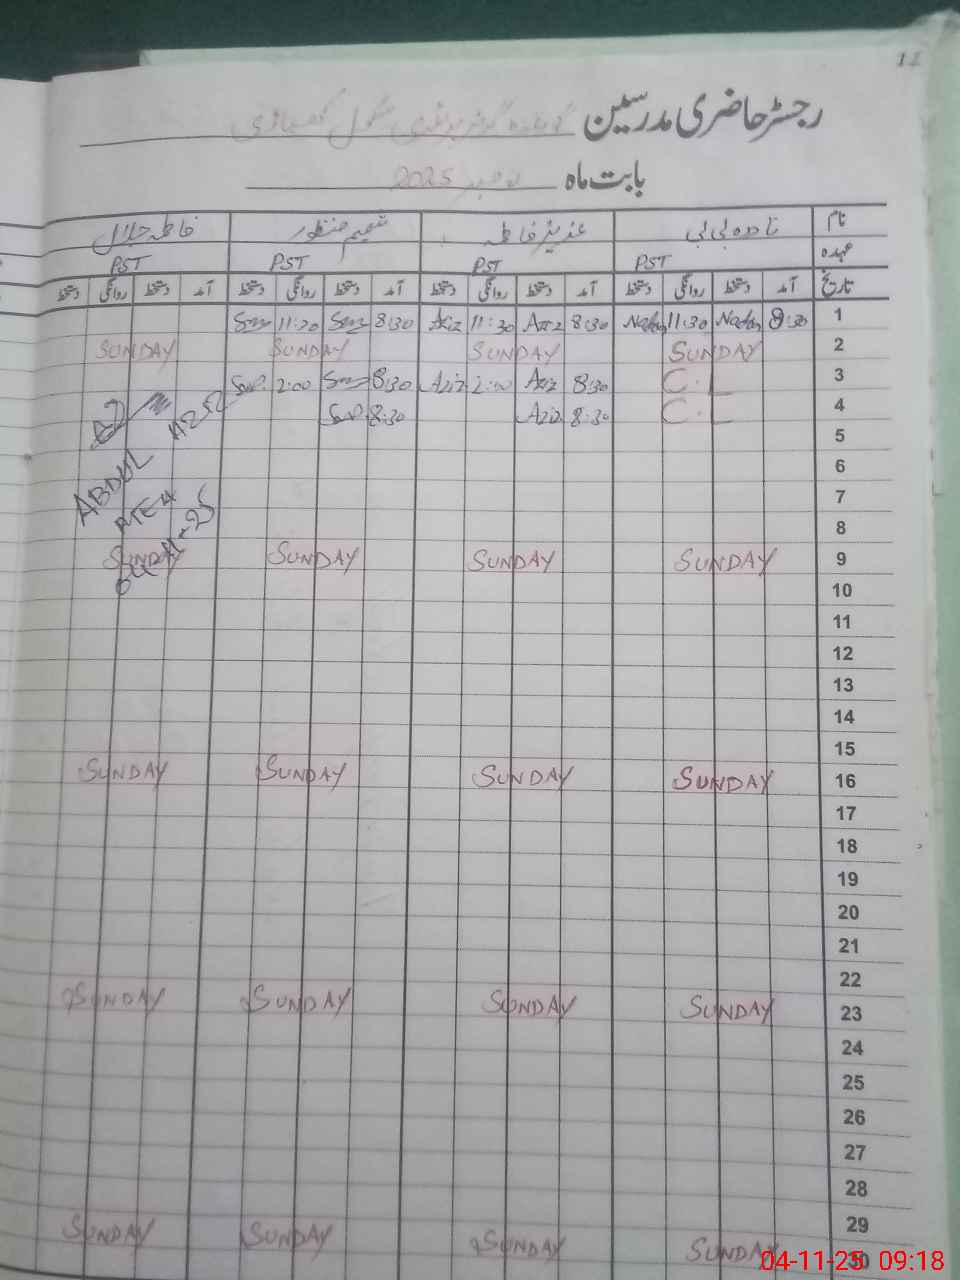 11
رجسٹر حاضری مدرسین
بابت ماہ نومبر 2025
نام نادہ بی بی عذیز فاطمہ شمیم منظور فاطمہ جلال
عہدہ PST PST PST PST
تاریخ آمد دستخط روانگی دستخط آمد دستخط روانگی دستخط آمد دستخط روانگی دستخط آمد دستخط روانگی دستخط
11:30 8:30 Aziz 11:30 8:30 11:30 8:30 1
SUNDAY SUNDAY SUNDAY SUNDAY 2
2:00 8:30 Aziz 2:00 Aziz 8:30 C.L 3
8:30 Aziz 8:30 C.L 4
5
ABDUL 6
7
8
SUNDAY SUNDAY SUNDAY SUNDAY 9
04-11-25
10
11
12
13
14
15
SUNDAY SUNDAY SUNDAY SUNDAY 16
17
18
19
20
21
22
SUNDAY SUNDAY SUNDAY SUNDAY 23
24
25
26
27
28
29
SUNDAY SUNDAY SUNDAY SUNDAY 30
04-11-25 09:18